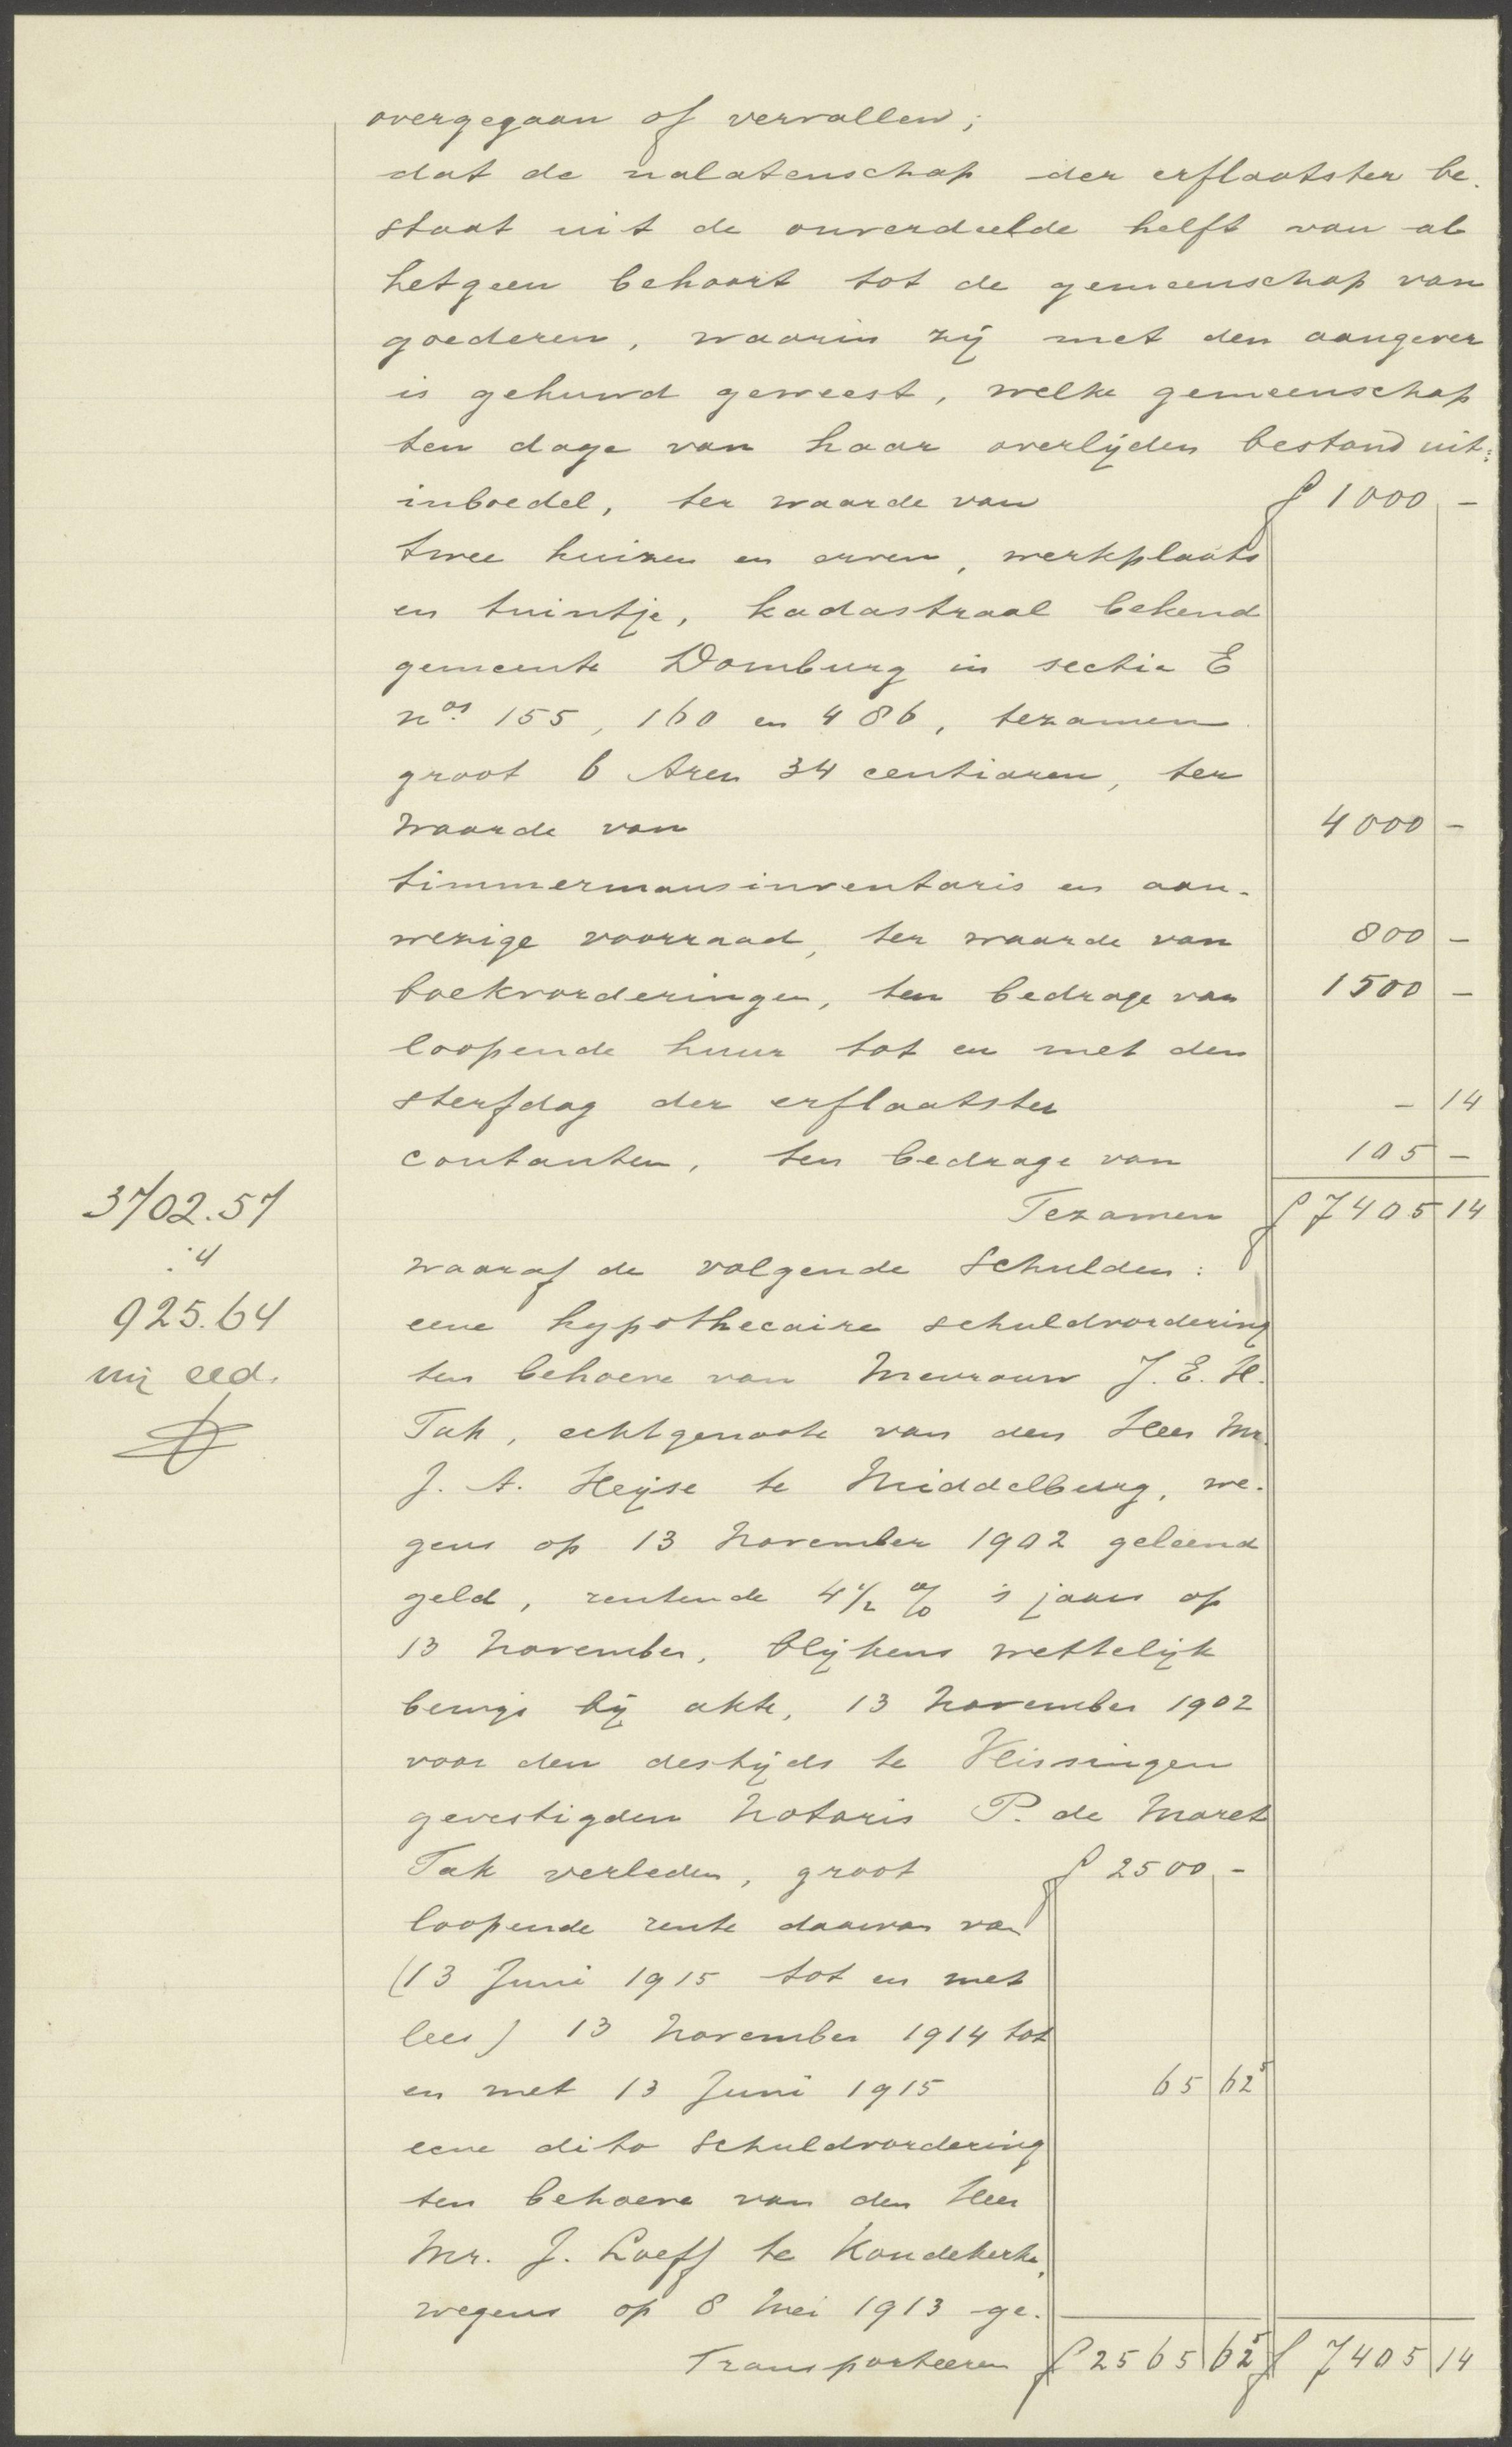 overgegaan of vervallen;
dat de nalatenschap der erflaatster be-
staat uit de onverdeelde helft van al
hetgeen behoort tot de gemeenschap van
goederen, waarin zij met den aangever
is gehuwd geweest, welke gemeenschap
ten dage van haar overlijden bestond uit:
inboedel, ter waarde van f 1000 -
twee huizen en erven, werkplaats
en tuintje, kadastraal bekend
gemeente Domburg in sectie E
nos. 155, 160 en 486, tezamen
groot 6 Aren 34 centiaren, ter
waarde van 4000 -
timmermansinventaris en aan-
wezige voorraad, ter waarde van 800 -
boekvorderingen, ten bedrage van 1500 -
loopende huur tot en met den
sterfdag der erflaatster - 14
contanten, ten bedrage van 105 -
Tezamen f 7405 14
3702.57
:4
925.64
eed.
waaraf de volgende schulden:
eene hypothecaire schuldvordering
ten behoeve van Mevrouw J. E. H.
Tak, echtgenoote van den Heer Mr.
J. A. Heijse te Middelburg, we-
gens op 13 November 1902 geleend
geld, rentende 4 1/2 % 's jaars op
13 November, blijkens wettelijk
bewijs bij akte, 13 November 1902
voor den destijds te Vlissingen
gevestigden Notaris P. de Maret
Tak verleden, groot f 2500 -
loopende rente daarvan van
(13 Juni 1915 tot en met
lees) 13 November 1914 tot
en met 13 Juni 1915 65 62⁵
eene dito schuldvordering
ten behoeve van den Heer
Mr. J. Loeff te Koudekerke,
wegens op 8 Mei 1913 ge-
Transporteeren f 2565 62⁵ f 7405 14